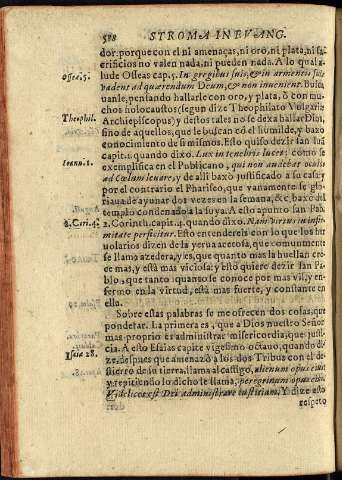 588 STROMA IN EVANG.
dor: porque con el ni amenaças, ni oro, ni plata, ni sa
crificios no valen nada, ni pueden nada. A lo qual a
lude Osseas cap. 5. In gregibus suis, & in armentis suis
Ossea. 5.
vadent ad quærendum Deum, & non invenient. Busca
uanle, pensando hallarle con oro, y plata, ò con mu
chos holocaustos (segun dize Theophilato Vulgariæ
Theophil.
Archiepiscopus) y destos tales no se dexa hallar Dios,
sino de aquellos, que le buscan cō el humilde, y baxo
conocimiento de si mismos. Esto quiso dezir san Iuā
capit. 1. quando dixo. Lux in tenebris lucet; como se
Ioann. 1.
exemplifica en el Publicano, qui non audebat oculos
ad Cœlum leuare, y de alli baxò justificado a su casa; y
por el contrario el Phariseo, que vanamente se glo
riaua de ayunar dos vezes en la semana, &c. baxò del
templo condenado a la suya. A esto apunto san Pab.
2. Corinth. capit. 4. quando dixo. Nam virtus in infir
2. Cori. 4.
mitate perficitur. Esto entendereis con lo que los hu
uolarios dizen de la yerua acetosa, que comunmente
se llama azedera, y es, que quanto mas la huellan cre
ce mas, y està mas viciosa: y esto quiere dezir san Pa
blo, que tanto quanto se conoce por mas vil, y en-
fermo en la virtud, està mas fuerte, y constante en
ella.
Sobre estas palabras se me ofrecen dos cosas, que
ponderar. La primera es, que a Dios nuestro Señor
mas proprio es administrar misericordia, que justi
cia. A esto Esaias capite vigesimo octauo, quando di
Isaiæ 28.
ze, despues que amenazò a los dos Tribus con el de
stierro de su tierra, llama al castigo, alienum opus eius
y repitiendo lo dicho le llama, peregrinum opus eius.
Videlicet est Dei administrare iustitiam. Y dize esto
respeto